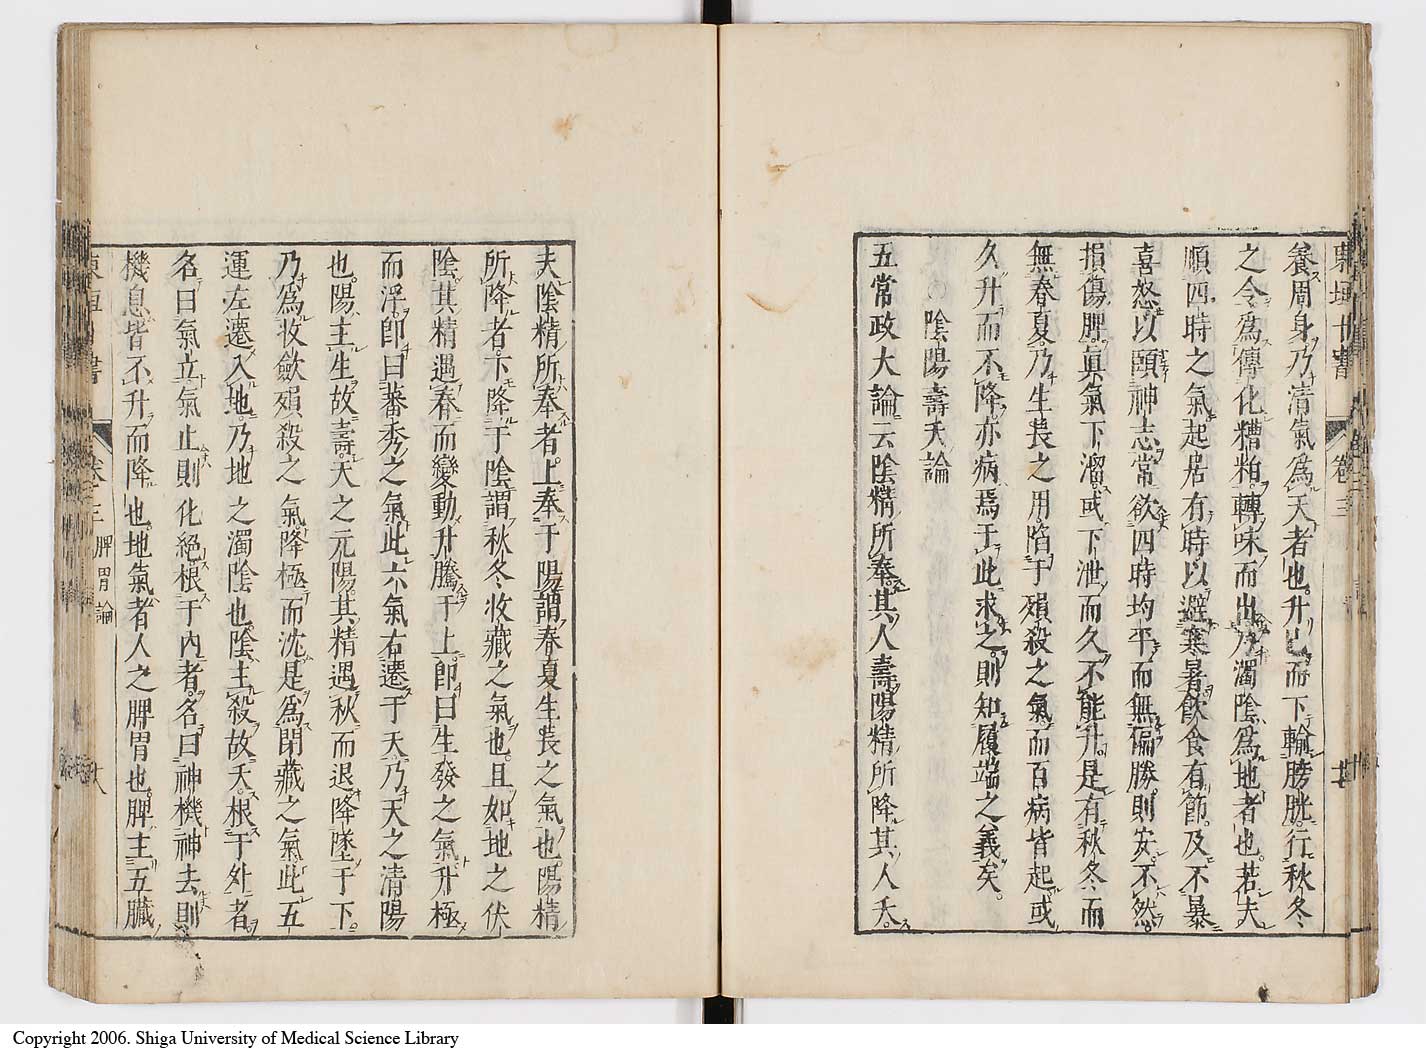 東垣十書
卷三
養周身乃清氣爲天者也升已而下輸膀胱行秋冬
之令爲傳化糟粕轉味而出乃濁陰爲地者也若夫
順四時之氣起居有時以避寒暑飲食有節及不暴
喜怒以頤神志常欲四時均平而無偏勝則安不然
損傷脾眞氣下溜或下泄而久不能升是有秋冬而
無春夏乃生長之用陷于殞殺之氣而百病皆起或
久升而不降亦病焉于此求之則知履端之義矣
陰陽壽夭論
五常政大論云陰精所奉其人壽陽精所降其人夭
夫陰精所奉者上奉于陽謂春夏生長之氣也陽精
所降者下降于陰謂秋冬收藏之氣也且如地之伏
陰其精遇春而變動升騰于上卽曰生發之氣升極
而浮卽曰蕃秀之氣此六氣右遷于天乃天之清陽
也陽主生故壽天之元陽其精遇秋而退降墜于下
乃爲收斂殞殺之氣降極而沈是爲閉藏之氣此五
運左遷入地乃地之濁陰也陰主殺故夭根于外者
名曰氣立氣止則化絕根于內者名曰神機神去則
機息皆不升而降也地氣者人之脾胃也脾主五臟
卷三 脾胃論
Copyright 2006. Shiga University of Medical Science Library